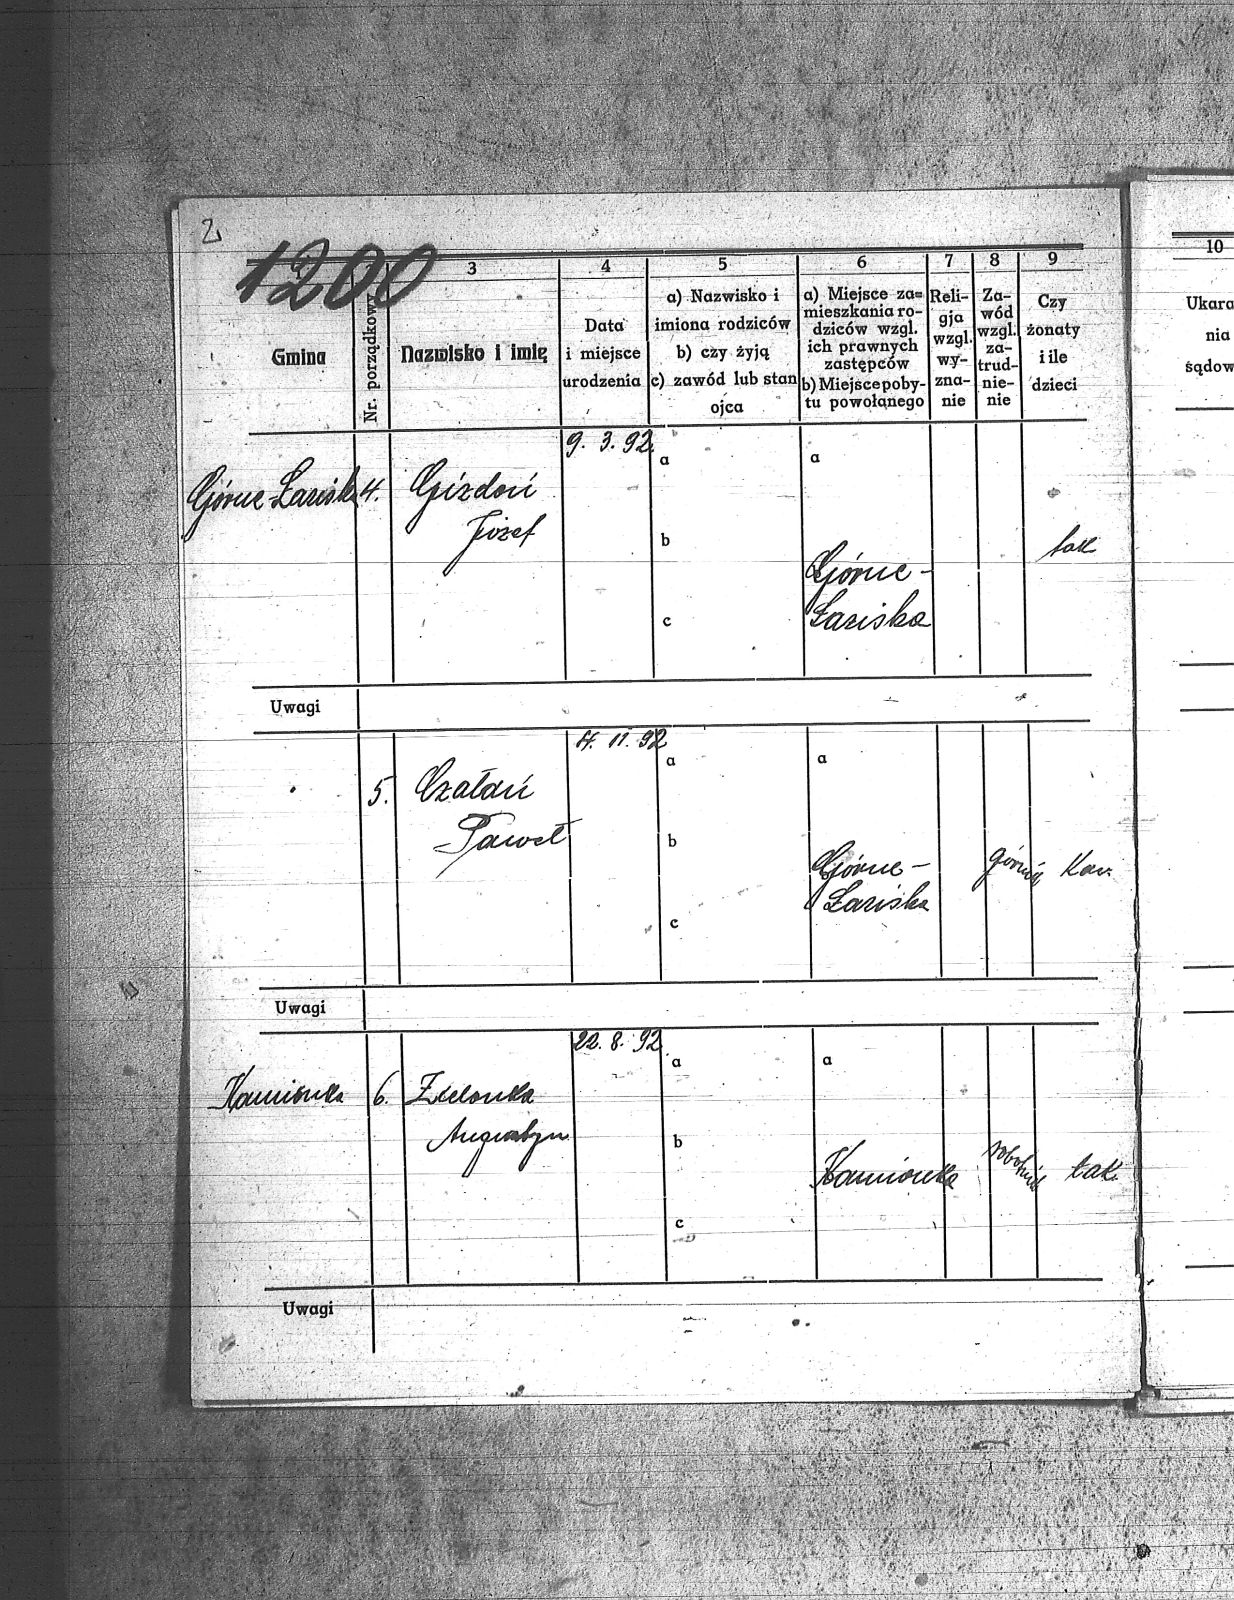 2
1200
3
4
5
6
7
8
9
10
Gmina
Nr. porządkowy
Nazwisko i imię
Data
i miejsce
urodzenia
a) Nazwisko i
imiona rodziców
b) czy żyją
c) zawód lub stan
ojca
a) Miejsce za=
mieszkania ro-
dziców wzgl.
ich prawnych
zastępców
b) Miejsce poby-
tu powołanego
Reli-
gja
wzgl.
wy-
zna-
nie
Za-
wód
wzgl.
za-
trud-
nie-
nie
Czy
żonaty
i ile
dzieci
Ukara
nia
sądow
9. 3. 92
Górne Łaziska
4.
Gizdoń
Józef
a
b
c
a
Górne-
Łaziska
tak
Uwagi
4. 11. 92
5.
Czałań
Paweł
a
b
c
a
Górne-
Łaziska
górnik
Kaw.
Uwagi
22. 8. 92
Kamionka
6.
Zielonka
Augustyn
a
b
c
a
Kamionka
robotnik
tak.
Uwagi